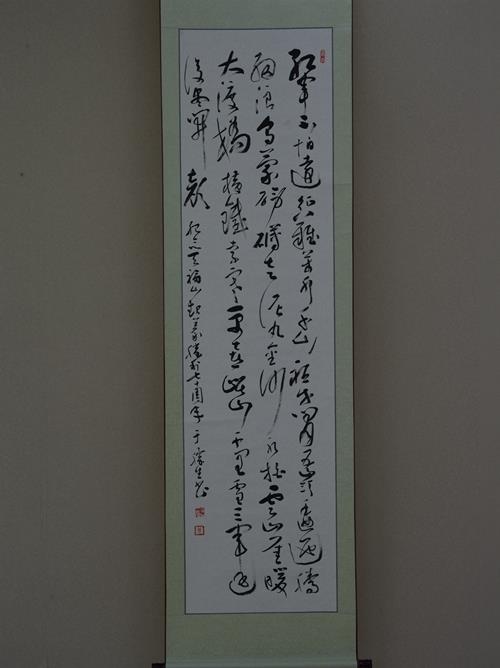 紅軍不怕遠征難萬水千山祇等閒五嶺逶迤騰
細浪烏蒙磅礴走泥丸金沙水拍雲崖暖
大渡橋橫鐵索寒更喜岷山千里雪三軍過
後盡開顏 紀念天福山起義勝利七十周年 于生書